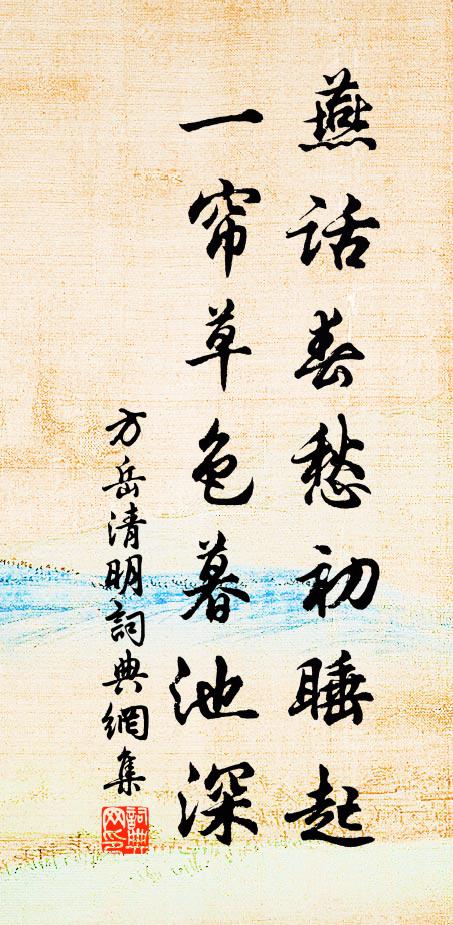 燕话春愁初睡起
一帘草色暮池深
方岳清明詞典網集
詞典网印